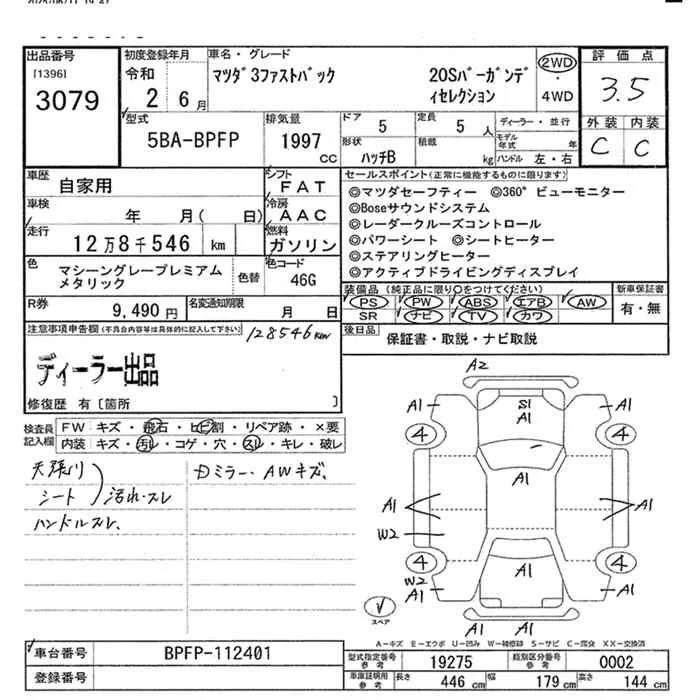 出品番号
[1396]
3079
初度登録年月
令和
2 6月
車名・グレード
マツダ3ファストバック 20Sバーガンデ
ィセレクション
2WD
・
4WD
評価点
3.5
外装 内装
C C
型式
5BA-BPFP
排気量
1997
cc
ドア
5
定員
5 人
形状
ハッチB
積載
kg
ディーラー・並行
モデル
年式 年
ハンドル 左・右
車歴
自家用
シフト
FAT
車検
年 月( 日)
冷房
AAC
走行
12万8千546 km
燃料
ガソリン
色
マシーングレープレミアム
メタリック
色替
色コード
46G
R券
9,490円
名変通知期限
月 日
セールスポイント(正常に機能するものに限ります)
◎マツダセーフティー ◎360°ビューモニター
◎Boseサウンドシステム
◎レーダークルーズコントロール
◎パワーシート ◎シートヒーター
◎ステアリングヒーター
◎アクティブドライビングディスプレイ
装備品(純正品に限り○をつけてください)
PS PW ABS エアB AW
SR ナビ TV カワ
新車保証書
有・無
後日品
保証書・取説・ナビ取説
注意事項申告欄(不具合内容等は具体的に記入して下さい)
128546km
ディーラー出品
修復歴 有〔箇所 〕
検査員
記入欄
FW キズ・飛石・ヒビ割・リペア跡・×要
内装 キズ・汚れ・コゲ・穴・スレ・キレ・破レ
天張り
シート
汚れ・スレ
ハンドルスレ、
Dミラー、AWキズ、
A2
A1
S1
A1
A1
4
4
A1
A1
A1
W2
4
4
W2
A1
A1
A1
A1
スペア
A-キズ E-エクボ U-凹み W-補修跡 S-サビ C-腐食 XX-交換済
車台番号
BPFP-112401
登録番号
型式指定番号
参考
19275
類別区分番号
参考
0002
車庫証明用
参考
長さ
446 cm
幅
179 cm
高さ
144 cm